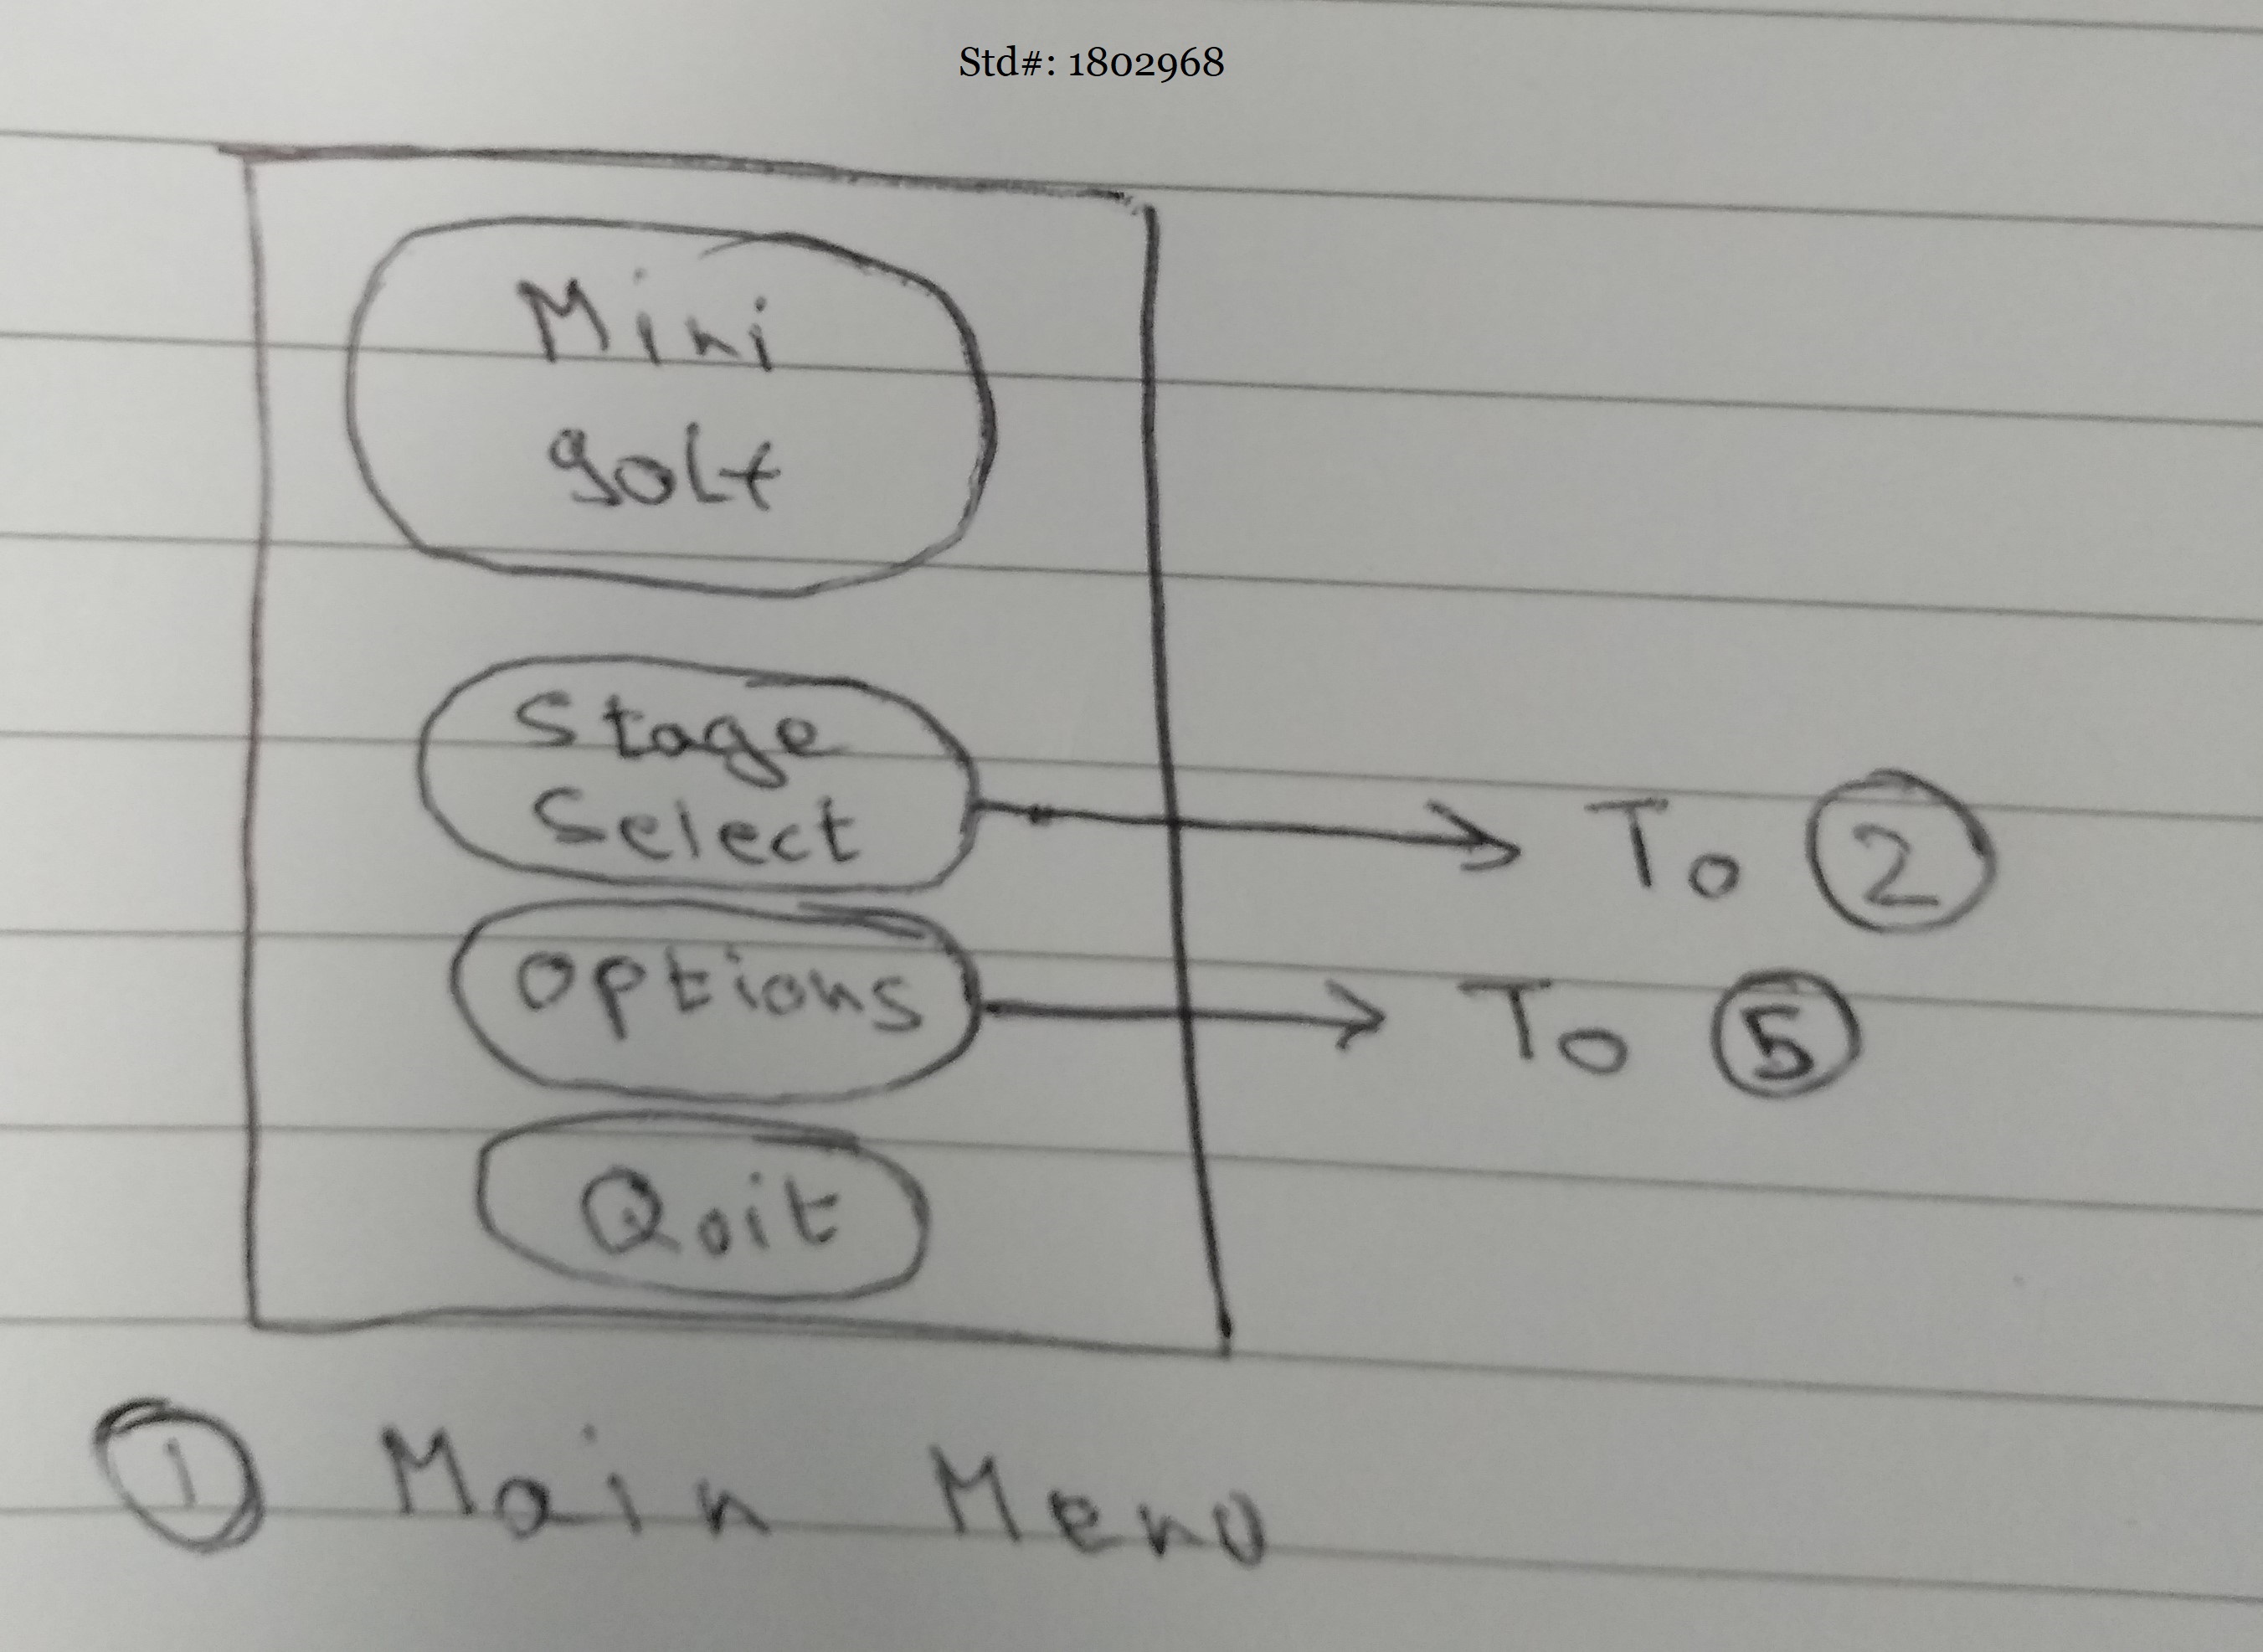 Std#: 1802968
Mini
golf
Stage
Select
To 2
Options
To 5
Quit
1 Main Menu